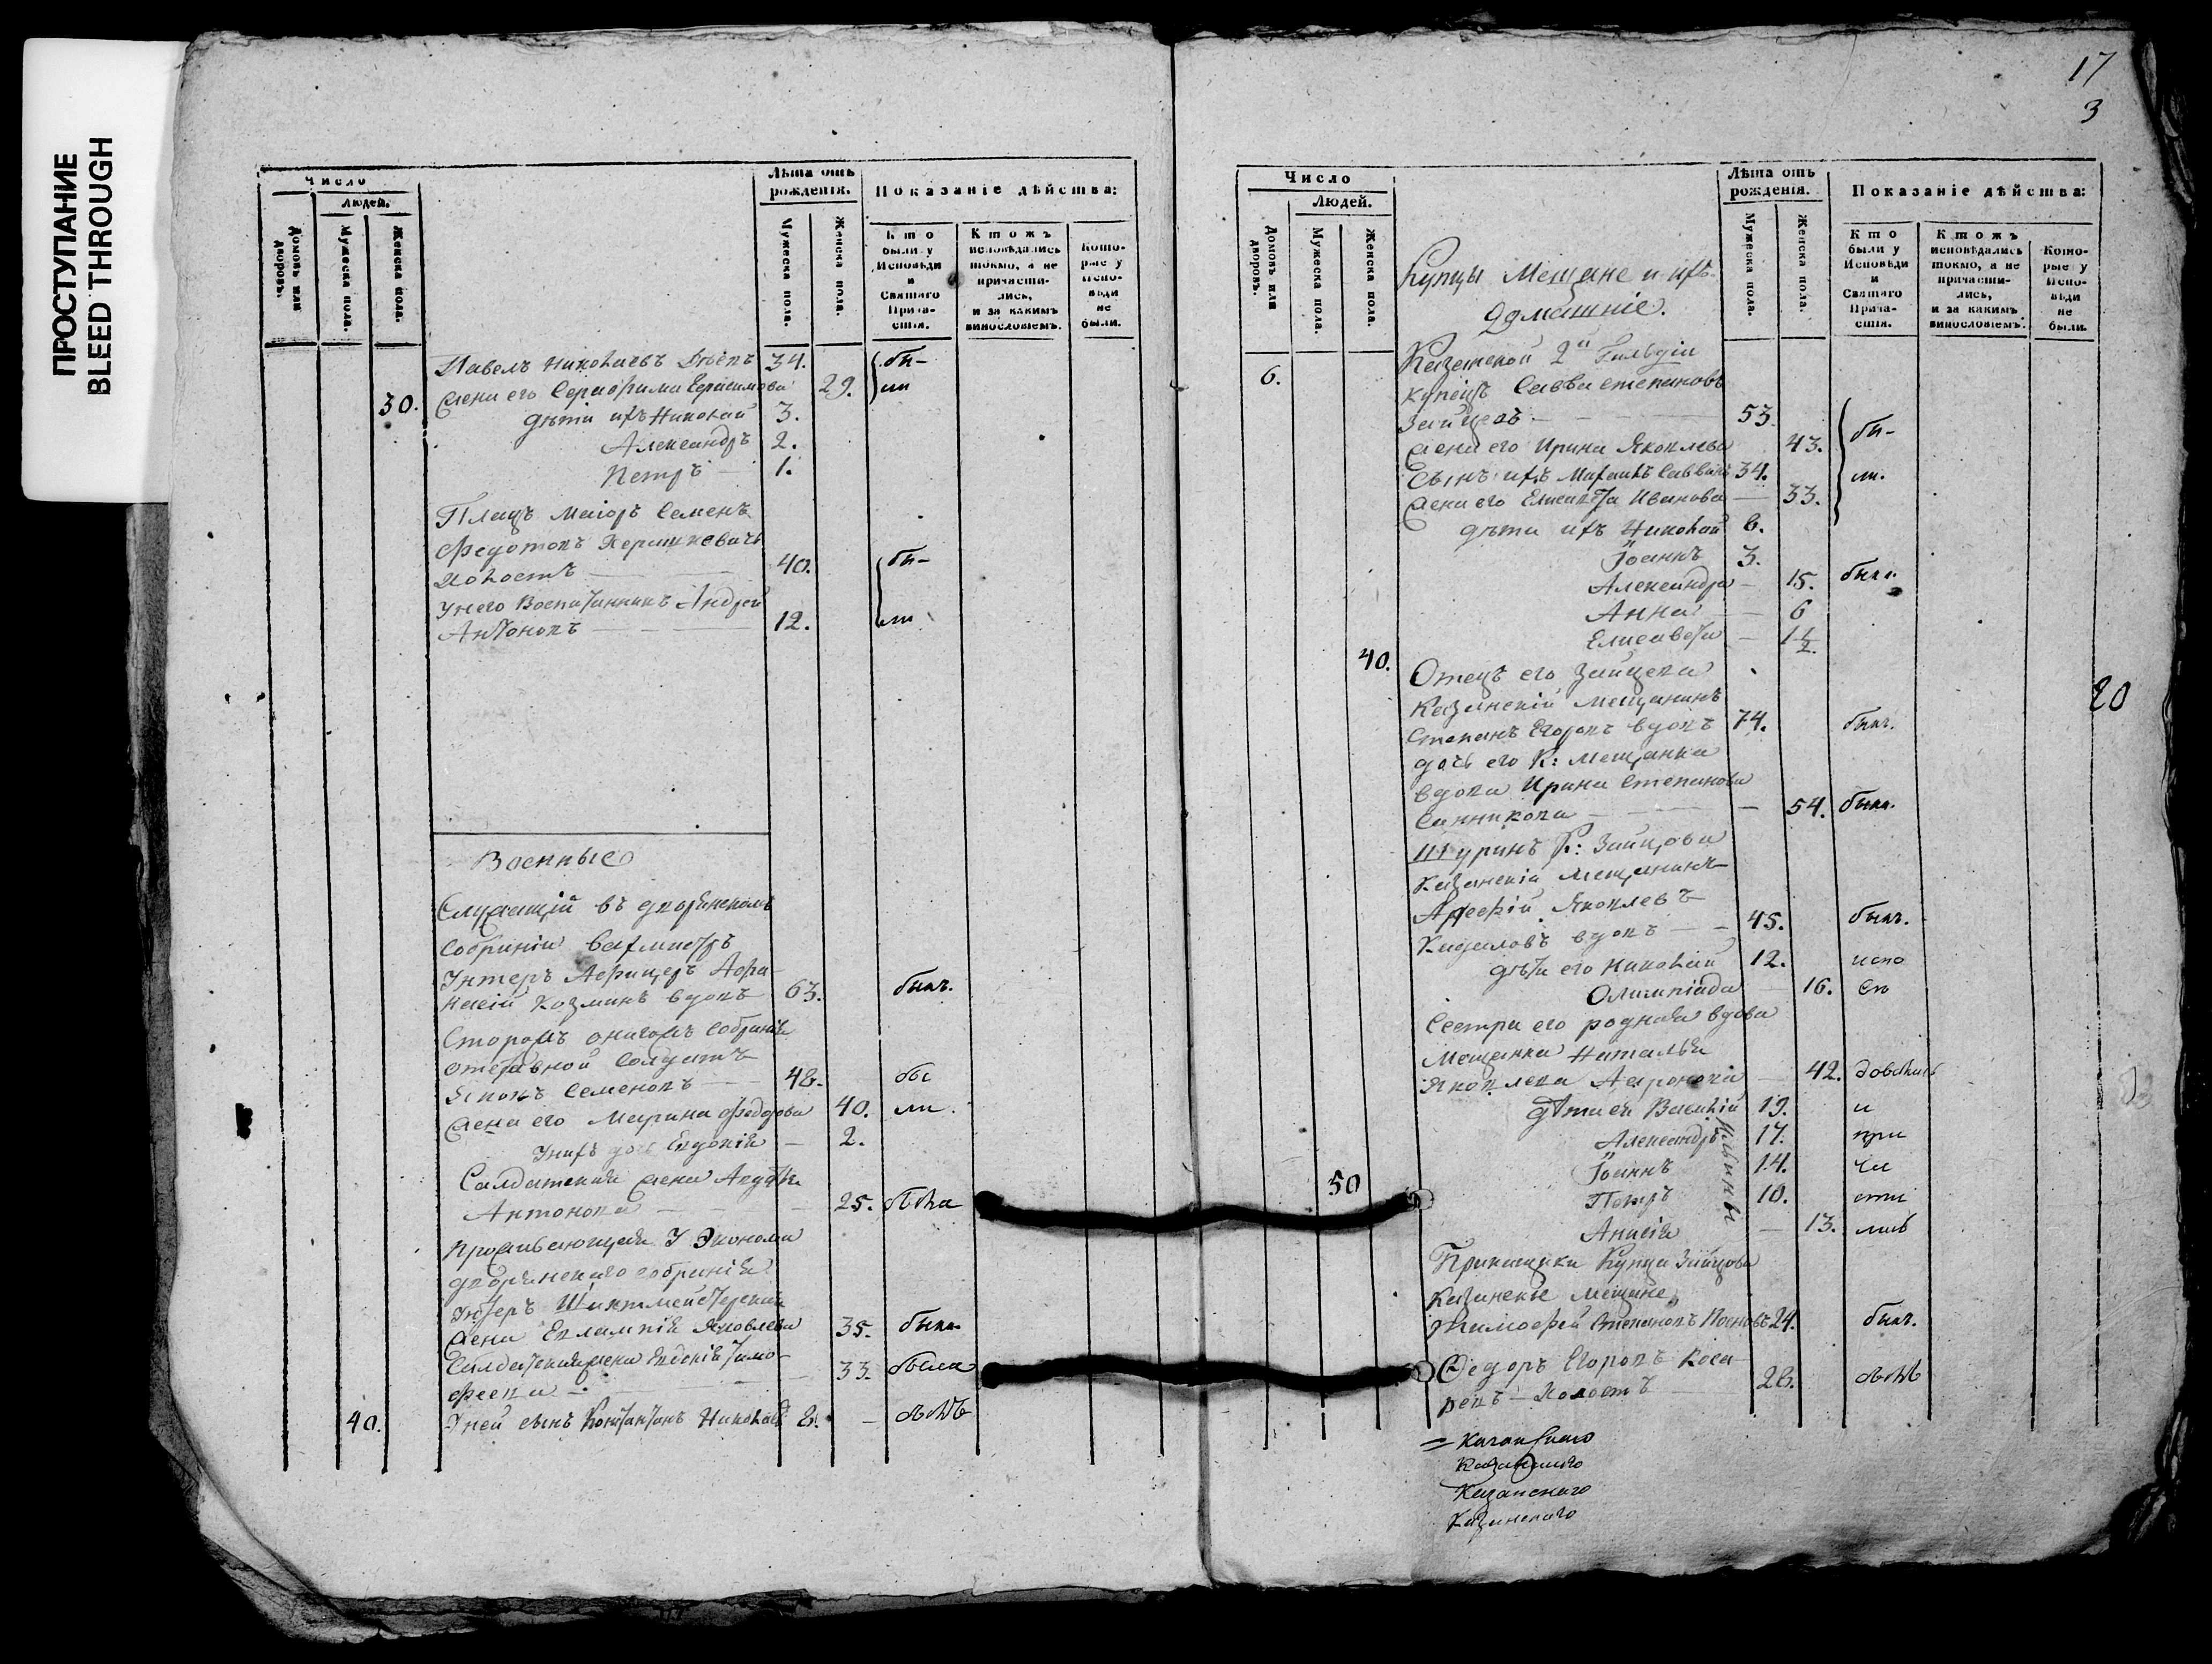 ПРОСТУПАНИЕ
BLEED THROUGH
Число
Людей.
Домовъ или дворовъ.
Мужеска пола.
Женска пола.
Лѣта отъ рожденія.
Мужеска пола.
Женска пола.
Показаніе дѣйства:
Кто были у Исповѣди и Святаго Прича-стія.
Ктожъ исповѣдались токмо, а не причасти-лись, и за какимъ винословіемъ.
Кото-рые у Испо-вѣди не были.
Павелъ Николаевъ 34. бы-
жена его Серафима Герасимова 29. ли
30. дѣти ихъ Николай 3.
Александръ 2.
Петръ — 1.
Плацъ Маіоръ Семенъ
Федотовъ
Холостъ — 40. бы-
у него Воспитанникъ Андрей
Антоновъ — 12. ли
Военные
Служащій въ дворянскомъ
Собраніи Вахмистръ
Унтеръ Афицеръ Афа-
насій Козминъ вдовъ 63. былъ.
Сторожъ онагожъ Собранія
отставной Солдатъ
Яковъ Семеновъ — 48. бы
жена его Марина Федорова 40. ли.
У нихъ дочь Евдокія — 2.
Салдатская жена Авдотья
Антонова — 25. была
Проживающая У Эконома
дворянскаго собранія
Унтеръ Шихтмейстерская
жена Евлампія Яковлева 35. была
Салдатская жена Евдокія Тимо-
феева — 33. была
40. У ней сынъ Константинъ Николаевъ 8. — былъ
17
3
Число
Людей.
Домовъ или дворовъ.
Мужеска пола.
Женска пола.
Лѣта отъ рожденія.
Мужеска пола.
Женска пола.
Показаніе дѣйства:
Кто были у Исповѣди и Святаго Прича-стія.
Ктожъ исповѣдались токмо, а не причасти-лись, и за какимъ винословіемъ.
Кото-рые у Испо-вѣди не были.
Купцы Мещане и ихъ
домашніе.
6. Казанской 2й Гильдіи
Купецъ Савва Степановъ
Зайцевъ — 53.
жена его Ирина Яковлева 43. бы-
Сынъ ихъ Михаилъ Саввинъ 34. ли.
жена его Елисавета Иванова — 33.
дѣти ихъ Николай 6.
Іоаннъ 3.
Александра — 15. была.
Анна — 6
Елисавета — 1½.
40. Отецъ его Зайцева
Казанскій Мещанинъ
Степанъ Егоровъ вдовъ 74. былъ.
20
дочь его К: Мещанка
вдова Ирина Степанова
Санникова — 54. была.
Шуринъ К: Зайцова
Казанскій Мещанинъ
Яковлевъ
вдовъ — 45. былъ.
дѣти его Николай 12. испо
Олимпіада — 16. вѣ
Сестра его родная вдова
Мещанка Наталья
Яковлева — 42. довались
дѣти ея Василій 19. и
Александръ 17. при
Іоаннъ 14. ча
50 Петръ 10. сти
Анисія — 13. лись
Ильины
Прикащики Купца Зайцова
Казанскіе Мещане,
Тимофей Степановъ 24. былъ.
Федоръ Егоровъ Коса-
ревъ — Холостъ 28. былъ
Казанскаго
Казанскаго
Казанскаго
Казанскаго